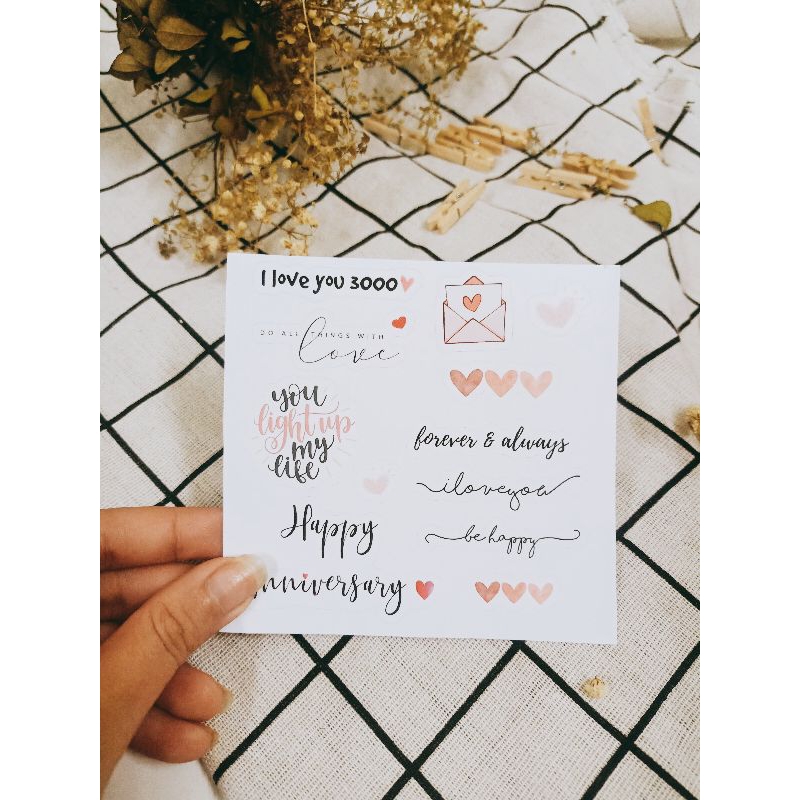 I love you 3000
DO ALL THINGS WITH
love
you
light up
my
life
Happy
nniversary
forever & always
iloveyou
be happy